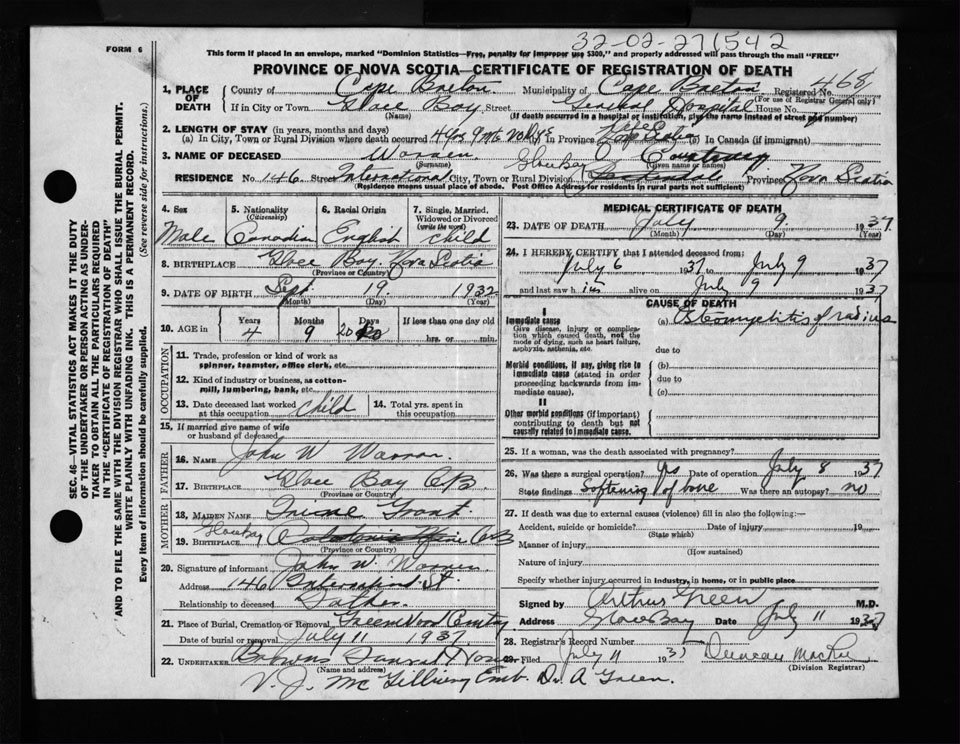 FORM 6
32-02-271542
This form if placed in an envelope, marked "Dominion Statistics—Free, penalty for improper use $300," and properly addressed will pass through the mail "FREE"
PROVINCE OF NOVA SCOTIA—CERTIFICATE OF REGISTRATION OF DEATH
1. PLACE OF DEATH
County of Cape Breton Municipality of Cape Breton Registered No. 468
(For use of Registrar General only)
If in City or Town Glace Bay Street General Hospital House No.
(If death occurred in a hospital or institution, give the name instead of street and number)
2. LENGTH OF STAY (in years, months and days)
(a) In City, Town or Rural Division where death occurred 4 yrs 9 mts in Province in Canada (if immigrant)
3. NAME OF DECEASED Warren Courtenay
(Surname) (Given name or names)
RESIDENCE No. 146 Street International City, Town or Rural Division Glace Bay Province Nova Scotia
(Residence means usual place of abode. Post Office Address for residents in rural parts not sufficient)
4. Sex Male
5. Nationality (Citizenship) Canadian
6. Racial Origin English
7. Single, Married, Widowed or Divorced (write the word) child
8. BIRTHPLACE Glace Bay. Nova Scotia
(Province or Country)
9. DATE OF BIRTH Sept. 19 1932
(Month) (Day) (Year)
10. AGE in Years 4 Months 9 Days 20 If less than one day old hrs. or min.
OCCUPATION
11. Trade, profession or kind of work as spinner, teamster, office clerk, etc.
12. Kind of industry or business, as cotton-mill, lumbering, bank, etc.
13. Date deceased last worked at this occupation child
14. Total yrs. spent in this occupation
15. If married give name of wife or husband of deceased
FATHER
16. NAME John W Warren
17. BIRTHPLACE Glace Bay C.B.
(Province or Country)
MOTHER
18. MAIDEN NAME Grant
19. BIRTHPLACE Glace Bay CB
(Province or Country)
20. Signature of informant John W. Warren
Address 146 International St.
Relationship to deceased Father
21. Place of Burial, Cremation or Removal Greenwood Cemty
Date of burial or removal July 11 1937
22. UNDERTAKER Funeral Home
(Name and address)
V. J. Mc Gillivray Emb. Dr. A Green.
MEDICAL CERTIFICATE OF DEATH
23. DATE OF DEATH July 9 1937
(Month) (Day) (Year)
24. I HEREBY CERTIFY that I attended deceased from:
July 6 1937 to July 9 1937
and last saw him alive on July 9 1937
CAUSE OF DEATH
I
Immediate cause (a) Osteomyelitis of radius
Give disease, injury or complication which caused death, not the mode of dying, such as heart failure, asphyxia, asthenia, etc.
due to
Morbid conditions, if any, giving rise to immediate cause (stated in order proceeding backwards from immediate cause).
(b)
due to
(c)
II
Other morbid conditions (if important) contributing to death but not causally related to immediate cause.
25. If a woman, was the death associated with pregnancy?
26. Was there a surgical operation? Yes Date of operation July 8 1937
State findings Softening of bone Was there an autopsy? no
27. If death was due to external causes (violence) fill in also the following:—
Accident, suicide or homicide? Date of injury 19
(State which)
Manner of injury
(How sustained)
Nature of injury
Specify whether injury occurred in industry, in home, or in public place
Signed by Arthur Green M.D.
Address Glace Bay Date July 11 1937
28. Registrar's Record Number
29. Filed July 11 1937 Duncan MacRae
(Division Registrar)
SEC. 46—VITAL STATISTICS ACT MAKES IT THE DUTY
OF THE UNDERTAKER OR PERSON ACTING AS UNDER-
TAKER TO OBTAIN ALL THE PARTICULARS REQUIRED
IN THE "CERTIFICATE OF REGISTRATION OF DEATH"
AND TO FILE THE SAME WITH THE DIVISION REGISTRAR WHO SHALL ISSUE THE BURIAL PERMIT.
WRITE PLAINLY WITH UNFADING INK. THIS IS A PERMANENT RECORD.
Every item of information should be carefully supplied. (See reverse side for instructions.)